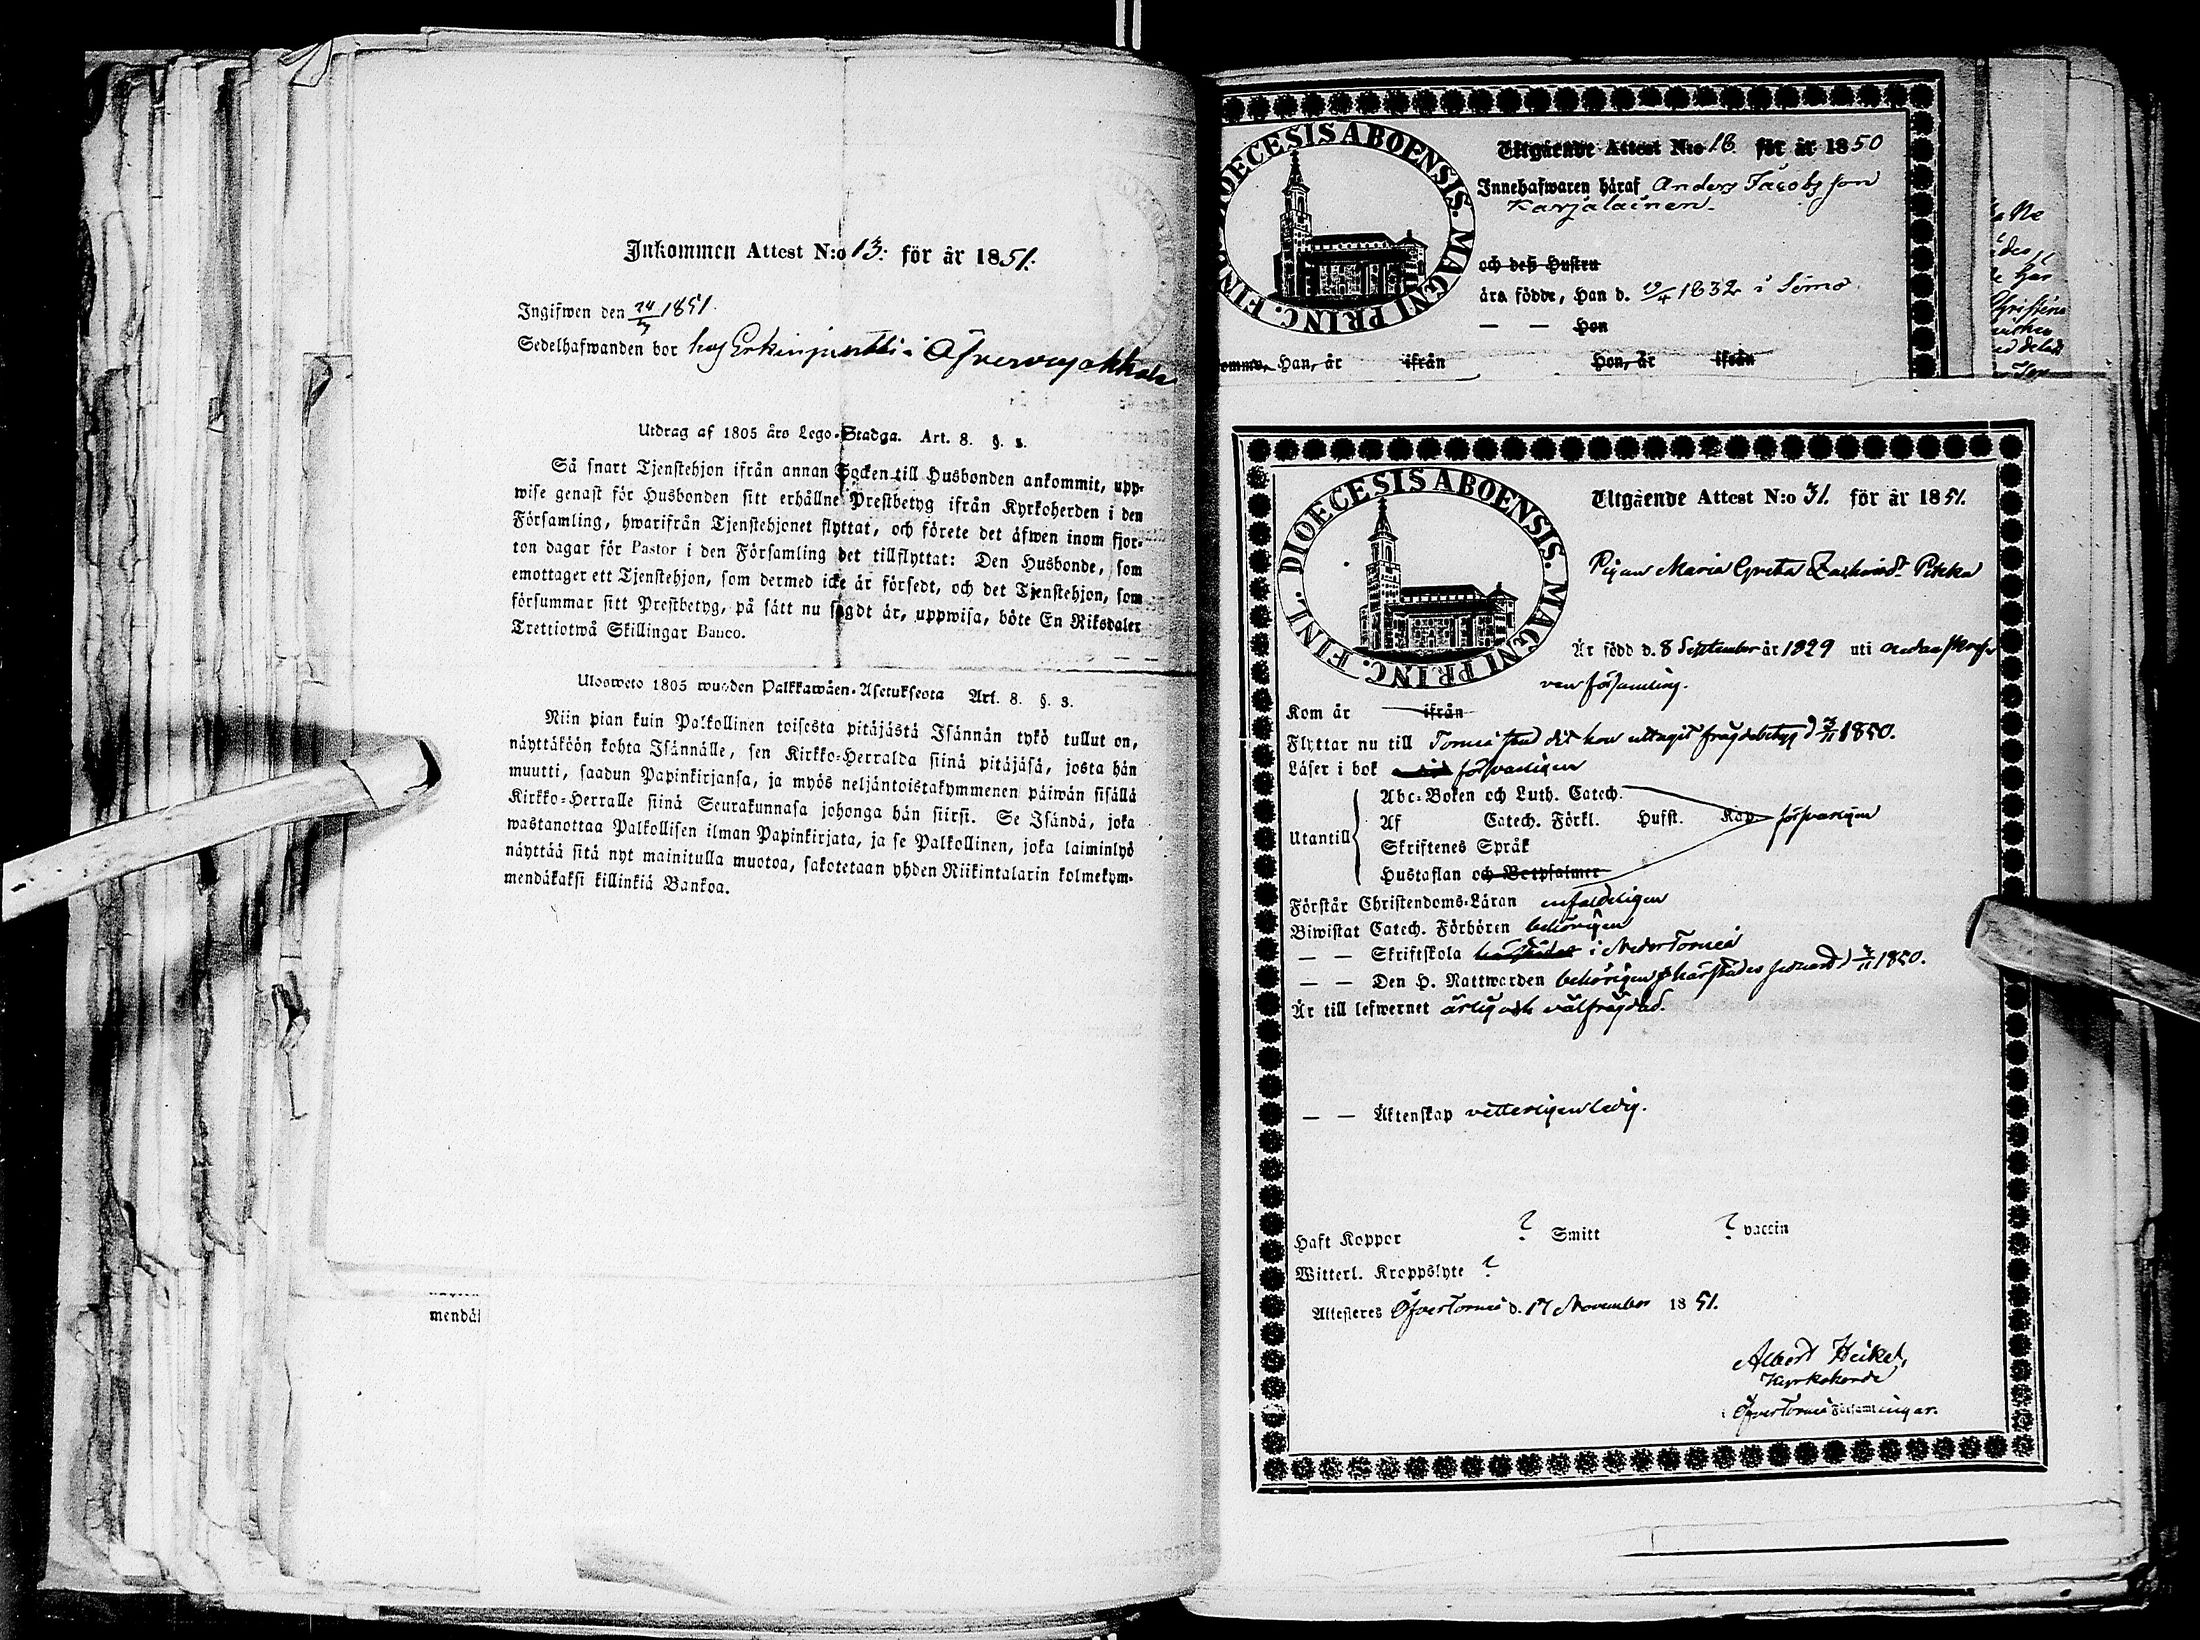 Inkommen Attest N:o 13. för år 1851.
Ingifwen den 24/5 1851.
Sedelhafwanden bor hos Erkinjuntti i Öfvervojakkala
Utdrag af 1805 års Lego-Stadga. Art. 8. §. 3.
Så snart Tjenstehjon ifrån annan Socken till Husbonden ankommit, upp-
wise genast för Husbonden sitt erhållne Prestbetyg ifrån Kyrkoherden i den
Församling, hwarifrån Tjenstehjonet flyttat, och förete det äfwen inom fjor-
ton dagar för Pastor i den Församling det tillflyttat: Den Husbonde, som
emottager ett Tjenstehjon, som dermed icke är försedt, och det Tjenstehjon, som
försummar sitt Prestbetyg, på sätt nu sagdt är, uppwisa, böte En Riksdaler
Trettiotwå Skillingar Banco.
Ulosweto 1805 wuoden Palkkawäen-Asetuksesta Art. 8. §. 3.
Niin pian kuin Palkollinen toisesta pitäjästä Isännän tykö tullut on,
näyttäköön kohta Isännälle, sen Kirkko-Herralda siinä pitäjäsä, josta hän
muutti, saadun Papinkirjansa, ja myös neljäntoistakymmenen päiwän sisällä
Kirkko-Herralle siinä Seurakunnasa johonga hän siirsi. Se Isändä, joka
wastanottaa Palkollisen ilman Papinkirjata, ja se Palkollinen, joka laiminlyö
näyttää sitä nyt mainitulla muotoa, sakotetaan yhden Riikintalarin kolmekym-
mendäkaksi killinkiä Bankoa.
mendäk
DIOECESIS ABOENSIS. MAGNI PRINC. FINL.
Utgående Attest N:o 18. för år 1850
Innehafwaren häraf Anders Jacobsson
Karjalainen.
och deß Hustru
ära födde, Han d. 19/4 1832 i Simo.
— — Hon
Han, år ifrån Hon, år ifrån
DIOECESIS ABOENSIS. MAGNI PRINC. FINL.
Utgående Attest N:o 31. för år 1851.
Pigan Maria Greta Zachrisd:r Pekka
Är född d. 8 September år 1829 uti
församling.
Kom år ifrån
Flyttar nu till Torneå stad dit hon uttagit frägdebetyg d 3/11 1850.
Läser i bok försvarligen
Utantill
Abc-Boken och Luth. Catech.
Af Catech. Förkl. Husst. Kap försvarligen
Skriftenes Språk
Hustaflan och Botpsalmer
Förstår Christendoms-Läran enfaldeligen
Biwistat Catech. Förhören behörigen
— — Skriftskola i NederTorneå
— — Den H. Nattwarden behörigen härstädes sednast d 3/11 1850.
Är till lefwernet ärlig och välfrägdad.
— — Äktenskap vetterligen ledig.
Haft Koppor ? Smitt ? vaccin
Witterl. Kroppslyte ?
Attesteres ÖfverTorneå d. 17 November 1851.
Albert Heikel,
Kyrkoherde
i ÖfverTorneå Församlingar.